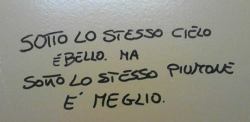 SOTTO LO STESSO CIELO
É BELLO. MA
SOTTO LO STESSO PIUMONE
E' MEGLIO.